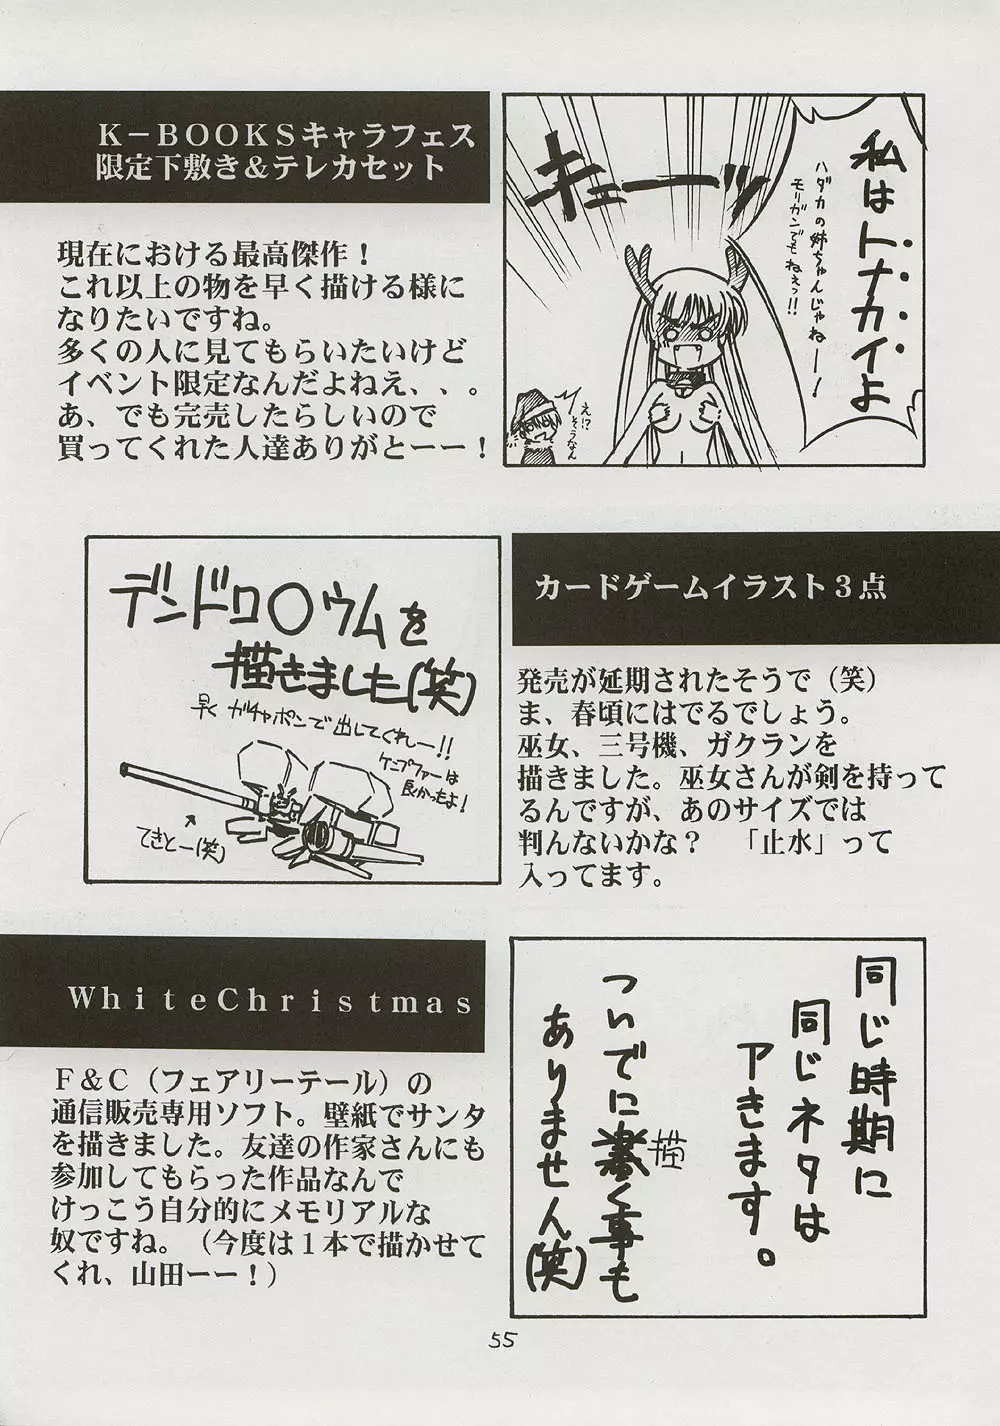 K－BOOKSキャラフェス
限定下敷き＆テレカセット
現在における最高傑作！
これ以上の物を早く描ける様に
なりたいですね。
多くの人に見てもらいたいけど
イベント限定なんだよねえ、、。
あ、でも完売したらしいので
買ってくれた人達ありがとーー！
私はトナカイよ
ハダカの姉ちゃんじゃねー！
モリガンでもねぇっ!!
キューッ
え!?
そうなん
カードゲームイラスト３点
発売が延期されたそうで（笑）
ま、春頃にはでるでしょう。
巫女、三号機、ガクランを
描きました。巫女さんが剣を持って
るんですが、あのサイズでは
判んないかな？　「止水」って
入ってます。
デンドロ〇ウムを
描きました(笑)
早くガチャポンで出してくれー!!
ケンプファーは
良かったよ!
てきとー(笑)
WhiteChristmas
F＆C（フェアリーテール）の
通信販売専用ソフト。壁紙でサンタ
を描きました。友達の作家さんにも
参加してもらった作品なんで
けっこう自分的にメモリアルな
奴ですね。（今度は１本で描かせて
くれ、山田ーー！）
同じ時期に
同じネタは
アきます。
ついでに描く事も
ありません(笑)
55